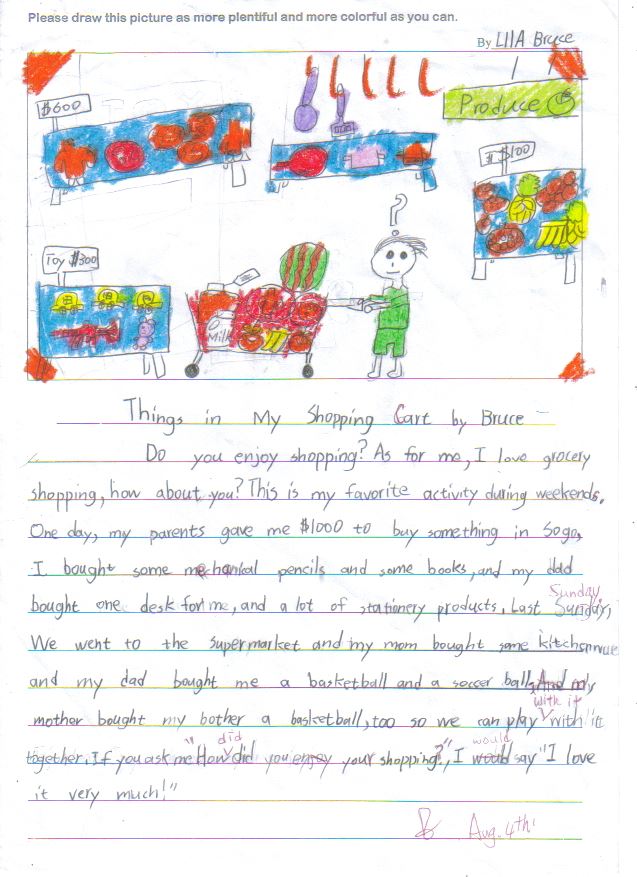 Please draw this picture as more plentiful and more colorful as you can.
By L11A Bruce
$600
Produce
$100
?
Toy $300
Milk
Things in My Shopping Cart by Bruce
Do you enjoy shopping? As for me, I love grocery
shopping, how about you? This is my favorite activity during weekends.
One day, my parents gave me $1000 to buy something in Sogo,
I bought some mechanical pencils and some books, and my dad
Sunday,
bought one desk for me, and a lot of stationery products, Last Sunday,
We went to the supermarket and my mom bought some kitchenware
and my dad bought me a basketball and a soccer ball, And my
with it
mother bought my bother a basketball, too so we can play with it
did would
together. If you ask me "How did you enjoy your shopping?", I would say "I love
it very much!"
Aug. 4th